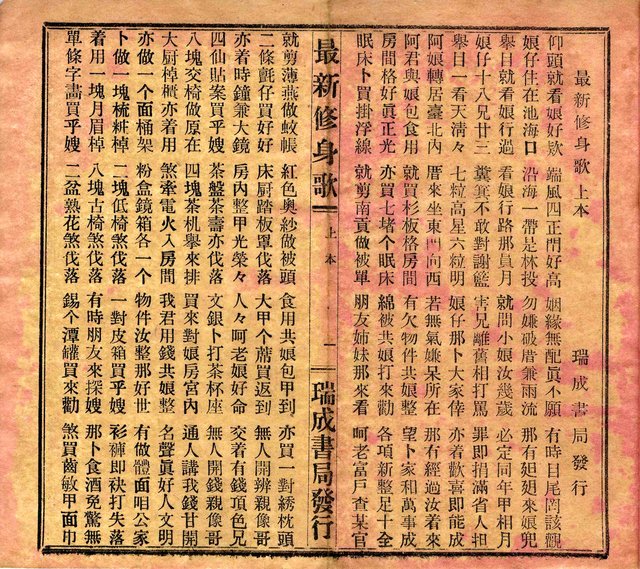 最新修身歌 上本
瑞成書局發行
仰頭就看娘好欵 端風四正門好高 姻緣無配眞不願 有時目尾罔該觀
娘仔住在池海口 沿海一帶是林投 勿嫌破厝兼雨流 那有𨑨迌來娘兜
舉目就看娘行過 看娘行路那員月 就問小娘汝幾歲 必定同年甲相月
娘仔十八兄廿三 糞箕不敢對謝籃 害兄離舊相打罵 罪即捐滿省人担
舉目一看天清々 七粒高星六粒明 娘仔那卜大家倖 亦着歡喜即能成
阿娘轉居臺北內 厝來坐東門向西 若無氣嫌呆所在 那有經過汝着來
阿君與娘包食用 就買杉板格房間 有欠物件共娘整 望卜家和萬事成
房間格好眞正光 亦買七堵个眠床 綿被共娘打來勸 各項新整足十全
眠床卜買掛浮線 就剪南貢做被單 朋友姊妹那來看 呵老富戶查某官
最新修身歌 上本 一 瑞成書局發行
就剪薄燕做蚊帳 紅色奧紗做被頭 食用共娘包甲到 亦買一對綉枕頭
二條氈仔買好好 床厨踏板單伐落 大甲个蓆買返到 無人開辨親像哥
亦着時鐘兼大鏡 房內整甲光榮々 人々呵老娘好命 交着有錢項色兄
四仙貼案買乎哥 茶盤茶壽亦伐落 文銀卜打茶杯座 無人開錢親像哥
八塊交椅做原在 四塊茶机舉來排 買來對娘房宮內 通人講我錢甘開
大厨棹櫃亦着用 煞牽電火入房間 我君用錢共娘整 名聲眞好人文明
亦做一個面桶架 粉盒鏡箱各一个 物件汝整那好世 有做體面咱公家
卜做一塊梳粧棹 二塊低椅煞伐落 一對皮箱買乎哥 衫褲即袂打失落
着用一塊月眉棹 八塊古椅煞伐落 有時朋友來探嫂 那卜食酒免驚無
單條字畵買乎嫂 二盆熟花煞伐落 錫个潭罐買來勸 煞買齒敏甲面巾